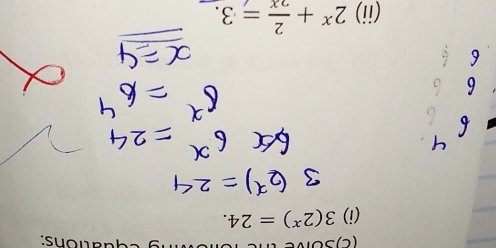 (c) Solve the following equations:
(i) 3(2ˣ) = 24.
3 (2ˣ) = 24
6x 6ˣ = 24
6ˣ = 6⁴
x = 4
(ii) 2ˣ + 2/2ˣ = 3.
6 6
6 6
6 6
4